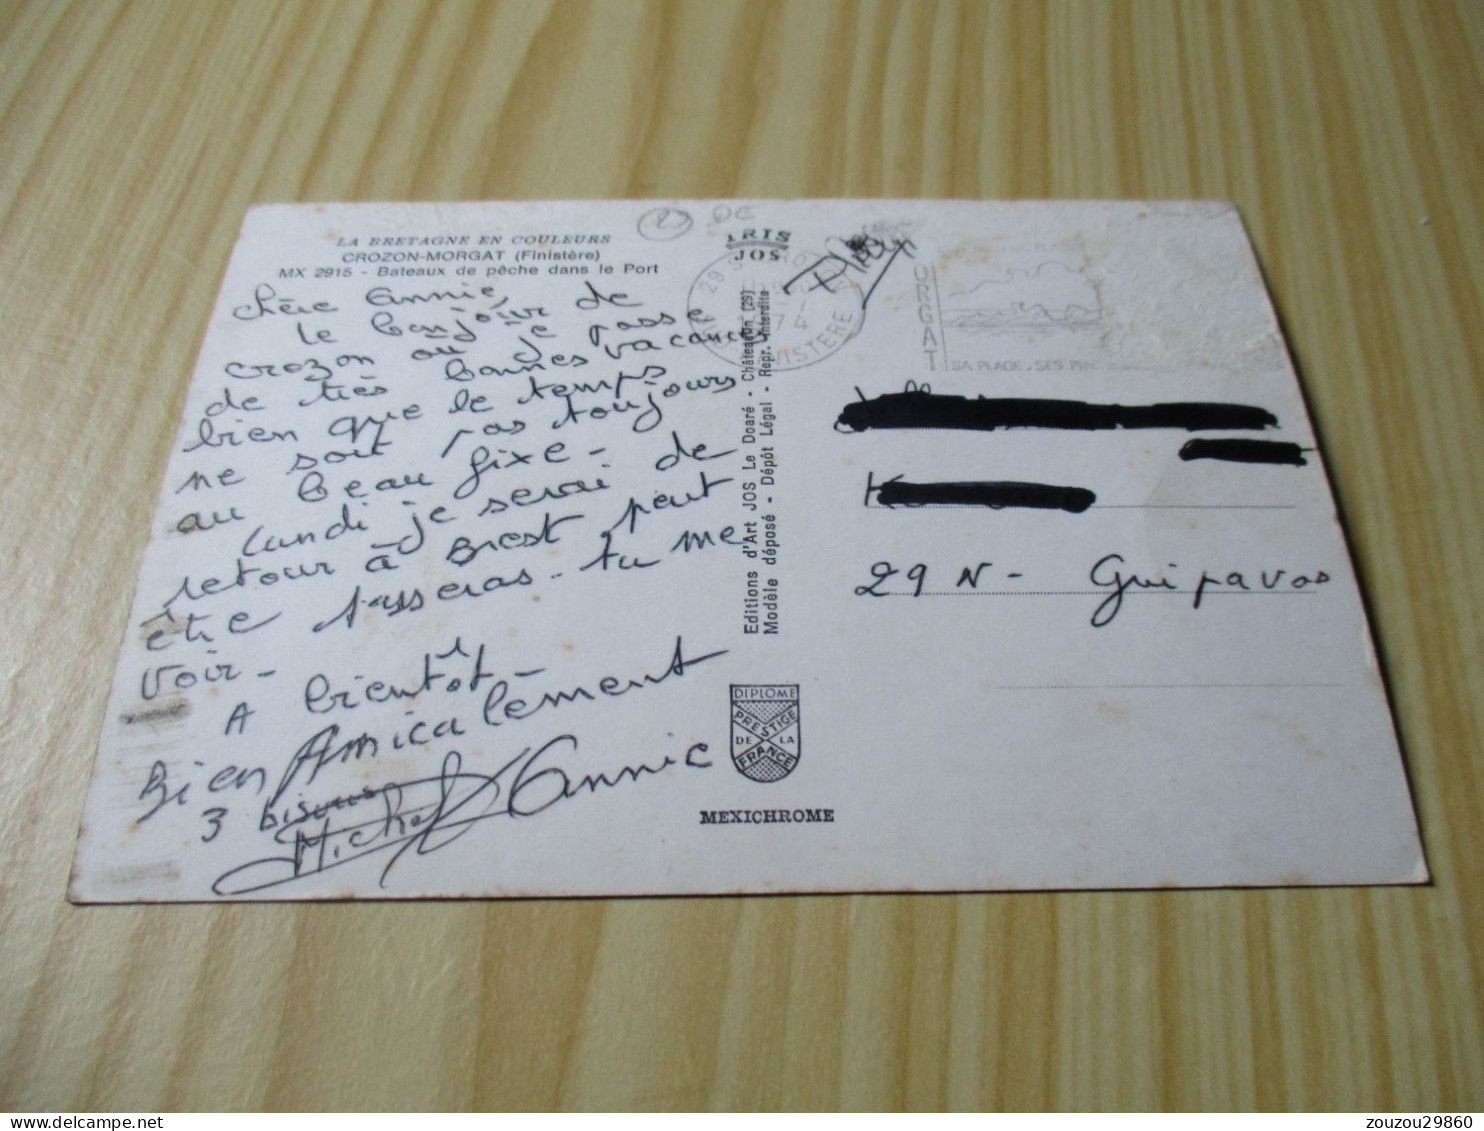 29 DE
LA BRETAGNE EN COULEURS
CROZON-MORGAT (Finistère)
MX 2915 - Bateaux de pêche dans le Port
chère Annie,
le bonjour de
crozon où je passe
de très bonnes vacances
bien que le temps
ne soit pas toujours
au beau fixe -
Lundi je serai de
retour à Brest peut
être passeras - tu me
voir -
A bientôt
Bien Amicalement
3 bisous
Michel Annie
IRIS
JOS
Editions d'Art JOS Le Doaré - Châteaulin (29)
Modèle déposé - Dépôt Légal - Repr. Interdite
DIPLOME
PRESTIGE
DE LA
FRANCE
MEXICHROME
29
FINISTERE
MORGAT
SA PLAGE, SES PINS
29 N - Guipavas
zouzou29860